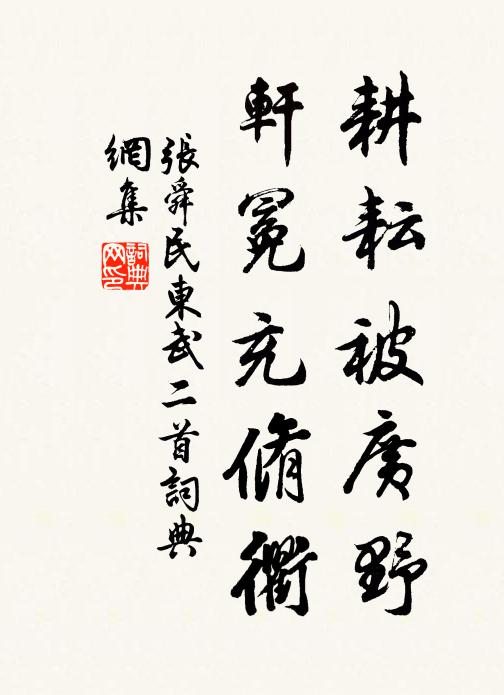 耕耘被廣野
軒冕充脩衢
張舜民東武二首詞典
網集
詞典
网印